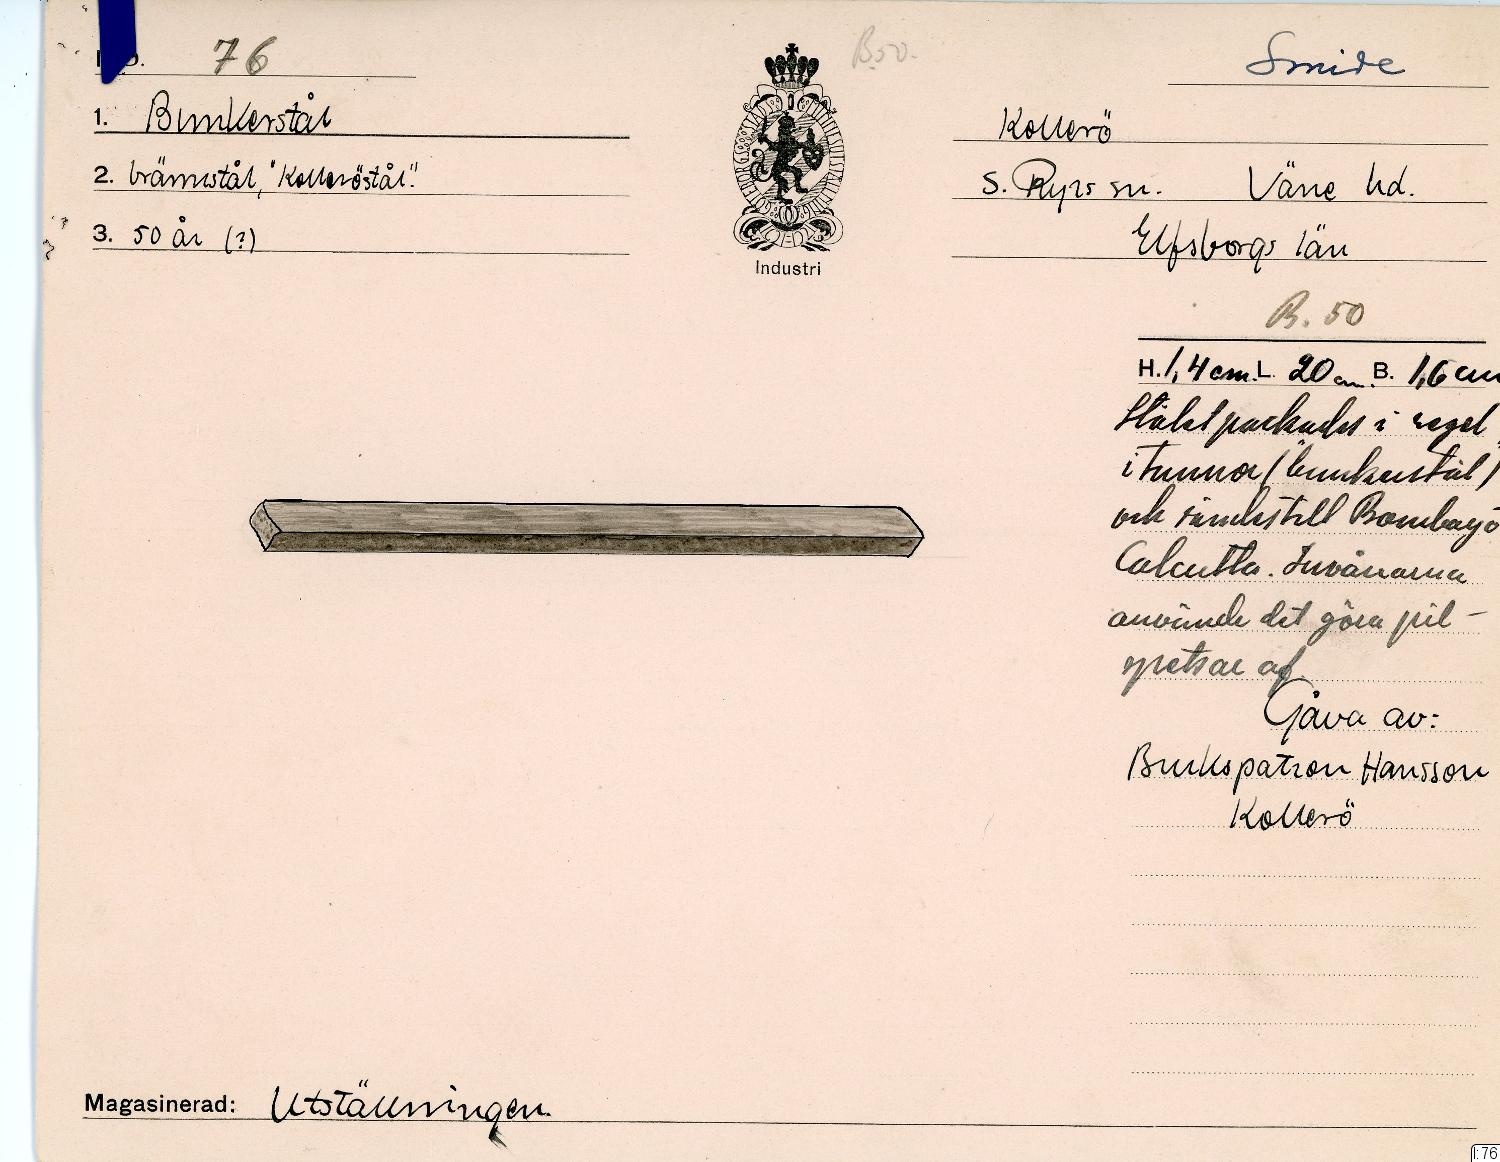 No. 76
B.50.
Smide
1. Bunkerstål
2. brännstål, "Kolleröstål".
3. 50 år (?)
Industri
Kollerö
S. Ryrs sn. Väne hd.
Elfsborgs län
B. 50
H. 1,4 cm. L. 20 cm. B. 1,6 cm
Stålet packades i regel
i tunnor ("bunkerstål")
och sändes till Bombay o
Calcutta. Invånarna
använde det göra pil-
spetsar af
Gåva av:
Brukspatron Hansson
Kollerö
Magasinerad: Utställningen.
I:76